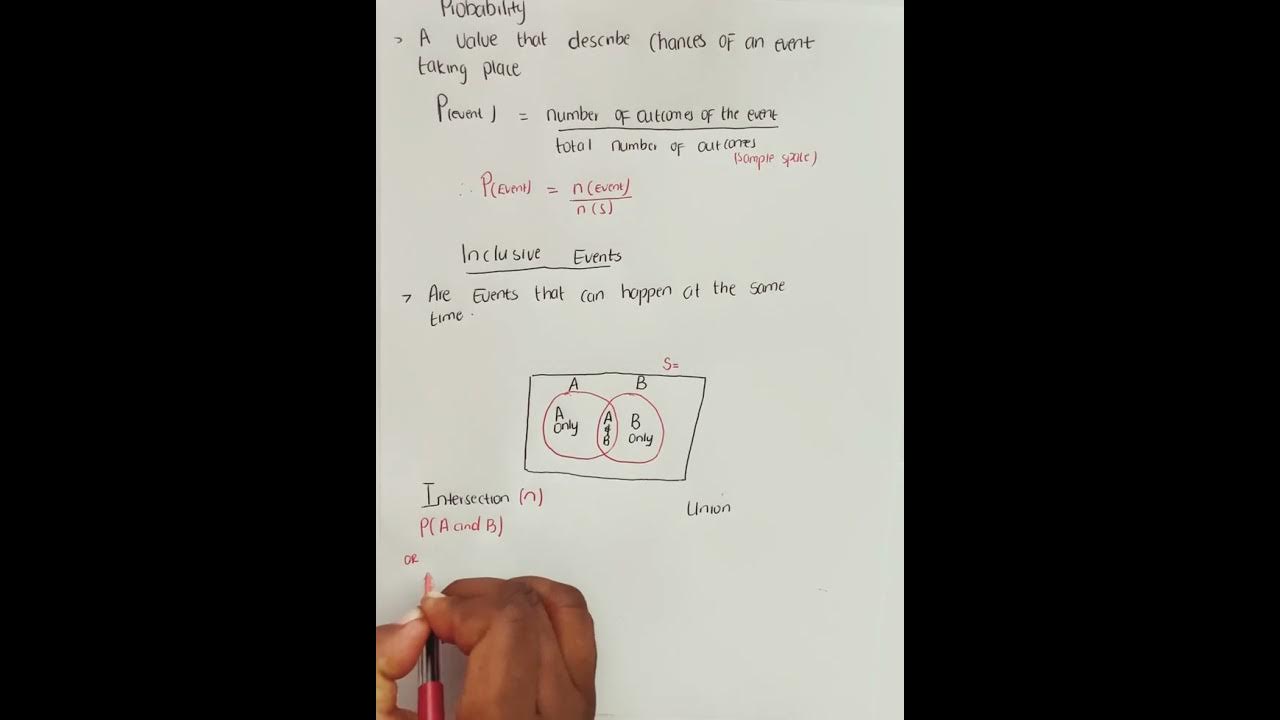 Probability
> A value that describe Chances OF an event
taking place
P(event) = number of outcomes of the event
total number of outcomes
(sample space)
∴ P(Event) = n(Event)
n(s)
Inclusive Events
> Are Events that can happen at the same
time.
S=
A B
A Only
A & B
B Only
Intersection (n)
Union
P(A and B)
OR